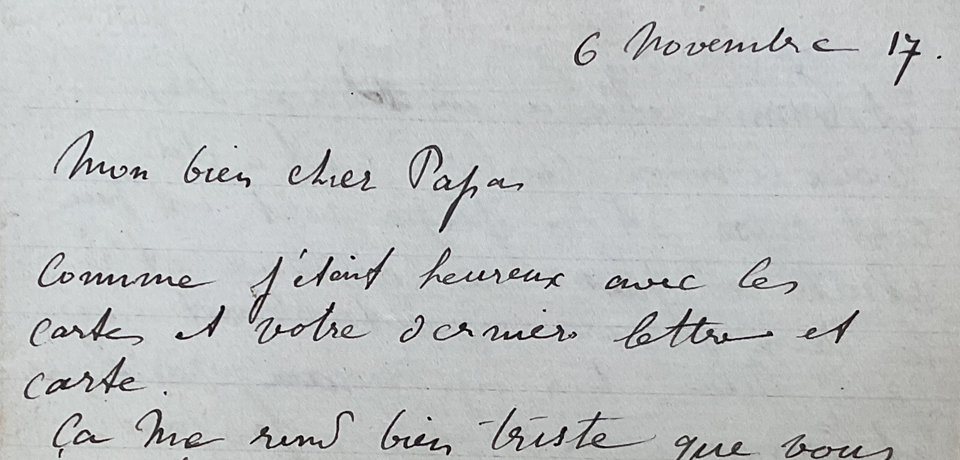 6 Novembre 17.
Mon bien cher Papa
Comme j'était heureux avec les
cartes et votre dernier lettre et
carte.
Ça me rend bien triste que vous